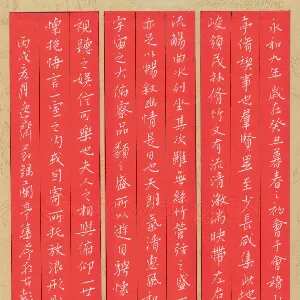 永和九年歲在癸丑暮春之初會于會稽
亭脩禊事也羣賢畢至少長咸集此
峻領茂林脩竹又有清流激湍映帶左右
流觴曲水列坐其次雖無絲竹管弦之盛
亦足以暢敘幽情是日也天朗氣清惠風
宇宙之大俯察品類之盛所以遊目騁懷
視聽之娛信可樂也夫人之相與俯仰一世
懷抱悟言一室之內或因寄所託放浪形
丙戌 月 齋 蘭亭集序